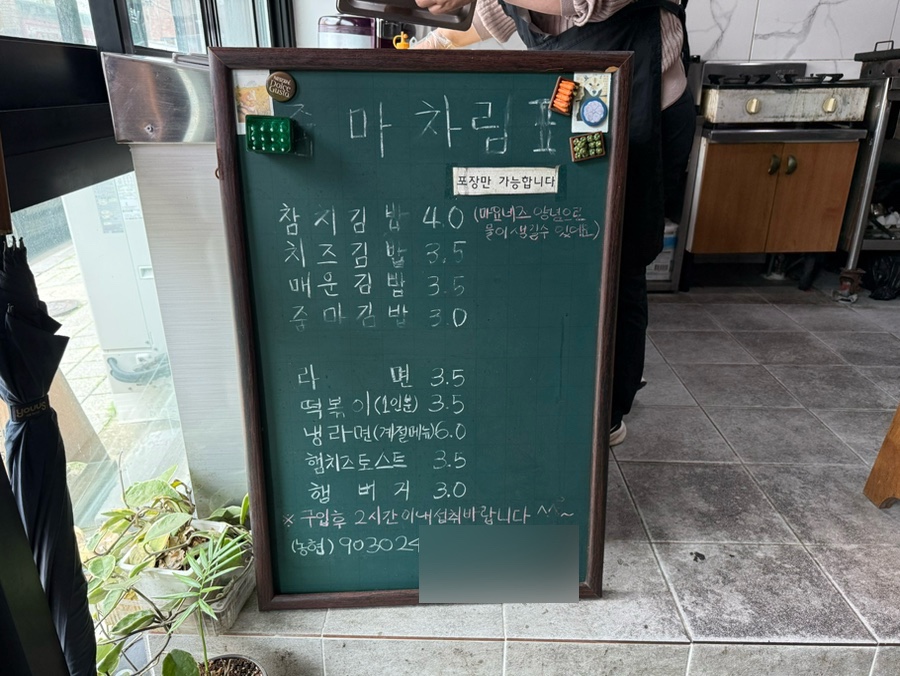 주마차림표
포장만 가능합니다
참치김밥 4.0 (마요네즈 양념으로
물이 생길수 있어요)
치즈김밥 3.5
매운김밥 3.5
주마김밥 3.0
라면 3.5
떡볶이(1인분) 3.5
냉라면(계절메뉴) 6.0
햄치즈토스트 3.5
햄버거 3.0
※ 구입후 2시간이내섭취바랍니다 ^^~
(농협) 903024